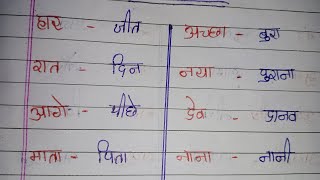 हार - जीत अच्छा - बुरा
रात - दिन नया - पुराना
आगे - पीछे देव - दानव
माता - पिता नाना - नानी